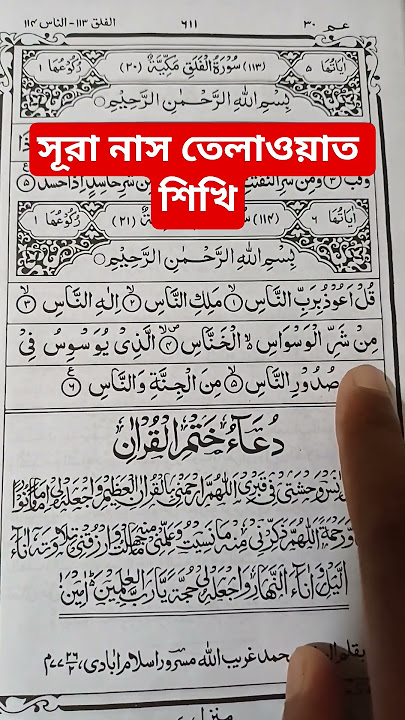 عـم ٣٠
٦١١
الفلق ١١٣ - الناس ١١٤
اٰيَاتُهَا ٥
(١١٣) سُوْرَةُ الْفَلَقِ مَكِّيَّةٌ (٢٠)
رُكُوْعُهَا ١
بِسْمِ اللّٰهِ الرَّحْمٰنِ الرَّحِيْمِ
সূরা নাস তেলাওয়াত
শিখি
وَقَبَ ٣ وَمِنْ شَرِّ النَّفّٰثٰتِ شَرِّ حَاسِدٍ اِذَا حَسَدَ ٥
اٰيَاتُهَا ٦
(١١٤) (٢١)
رُكُوْعُهَا ١
بِسْمِ اللّٰهِ الرَّحْمٰنِ الرَّحِيْمِ
قُلْ اَعُوْذُ بِرَبِّ النَّاسِ ١ مَلِكِ النَّاسِ ٢ اِلٰهِ النَّاسِ ٣
مِنْ شَرِّ الْوَسْوَاسِ الْخَنَّاسِ ٤ الَّذِيْ يُوَسْوِسُ فِيْ
صُدُوْرِ النَّاسِ ٥ مِنَ الْجِنَّةِ وَالنَّاسِ ٦
دُعَآءُ خَتْمِ الْقُرْاٰنِ
وَحْشَتِيْ فِيْ قَبْرِيْ اَللّٰهُمَّ ارْحَمْنِيْ بِالْقُرْاٰنِ الْعَظِيْمِ وَاجْعَلْهُ لِيْ اِمَامًا وَّنُوْرًا
وَّرَحْمَةً اَللّٰهُمَّ ذَكِّرْنِيْ مِنْهُ مَا نَسِيْتُ وَعَلِّمْنِيْ مِنْهُ مَا جَهِلْتُ وَارْزُقْنِيْ تِلَاوَتَهٗ اٰنَآءَ
الَّيْلِ وَاٰنَآءَ النَّهَارِ وَاجْعَلْهُ لِيْ حُجَّةً يَّا رَبَّ الْعٰلَمِيْنَ اٰمِيْنَ
محمد غريب الله مسرور اسلام آبادى
منزل